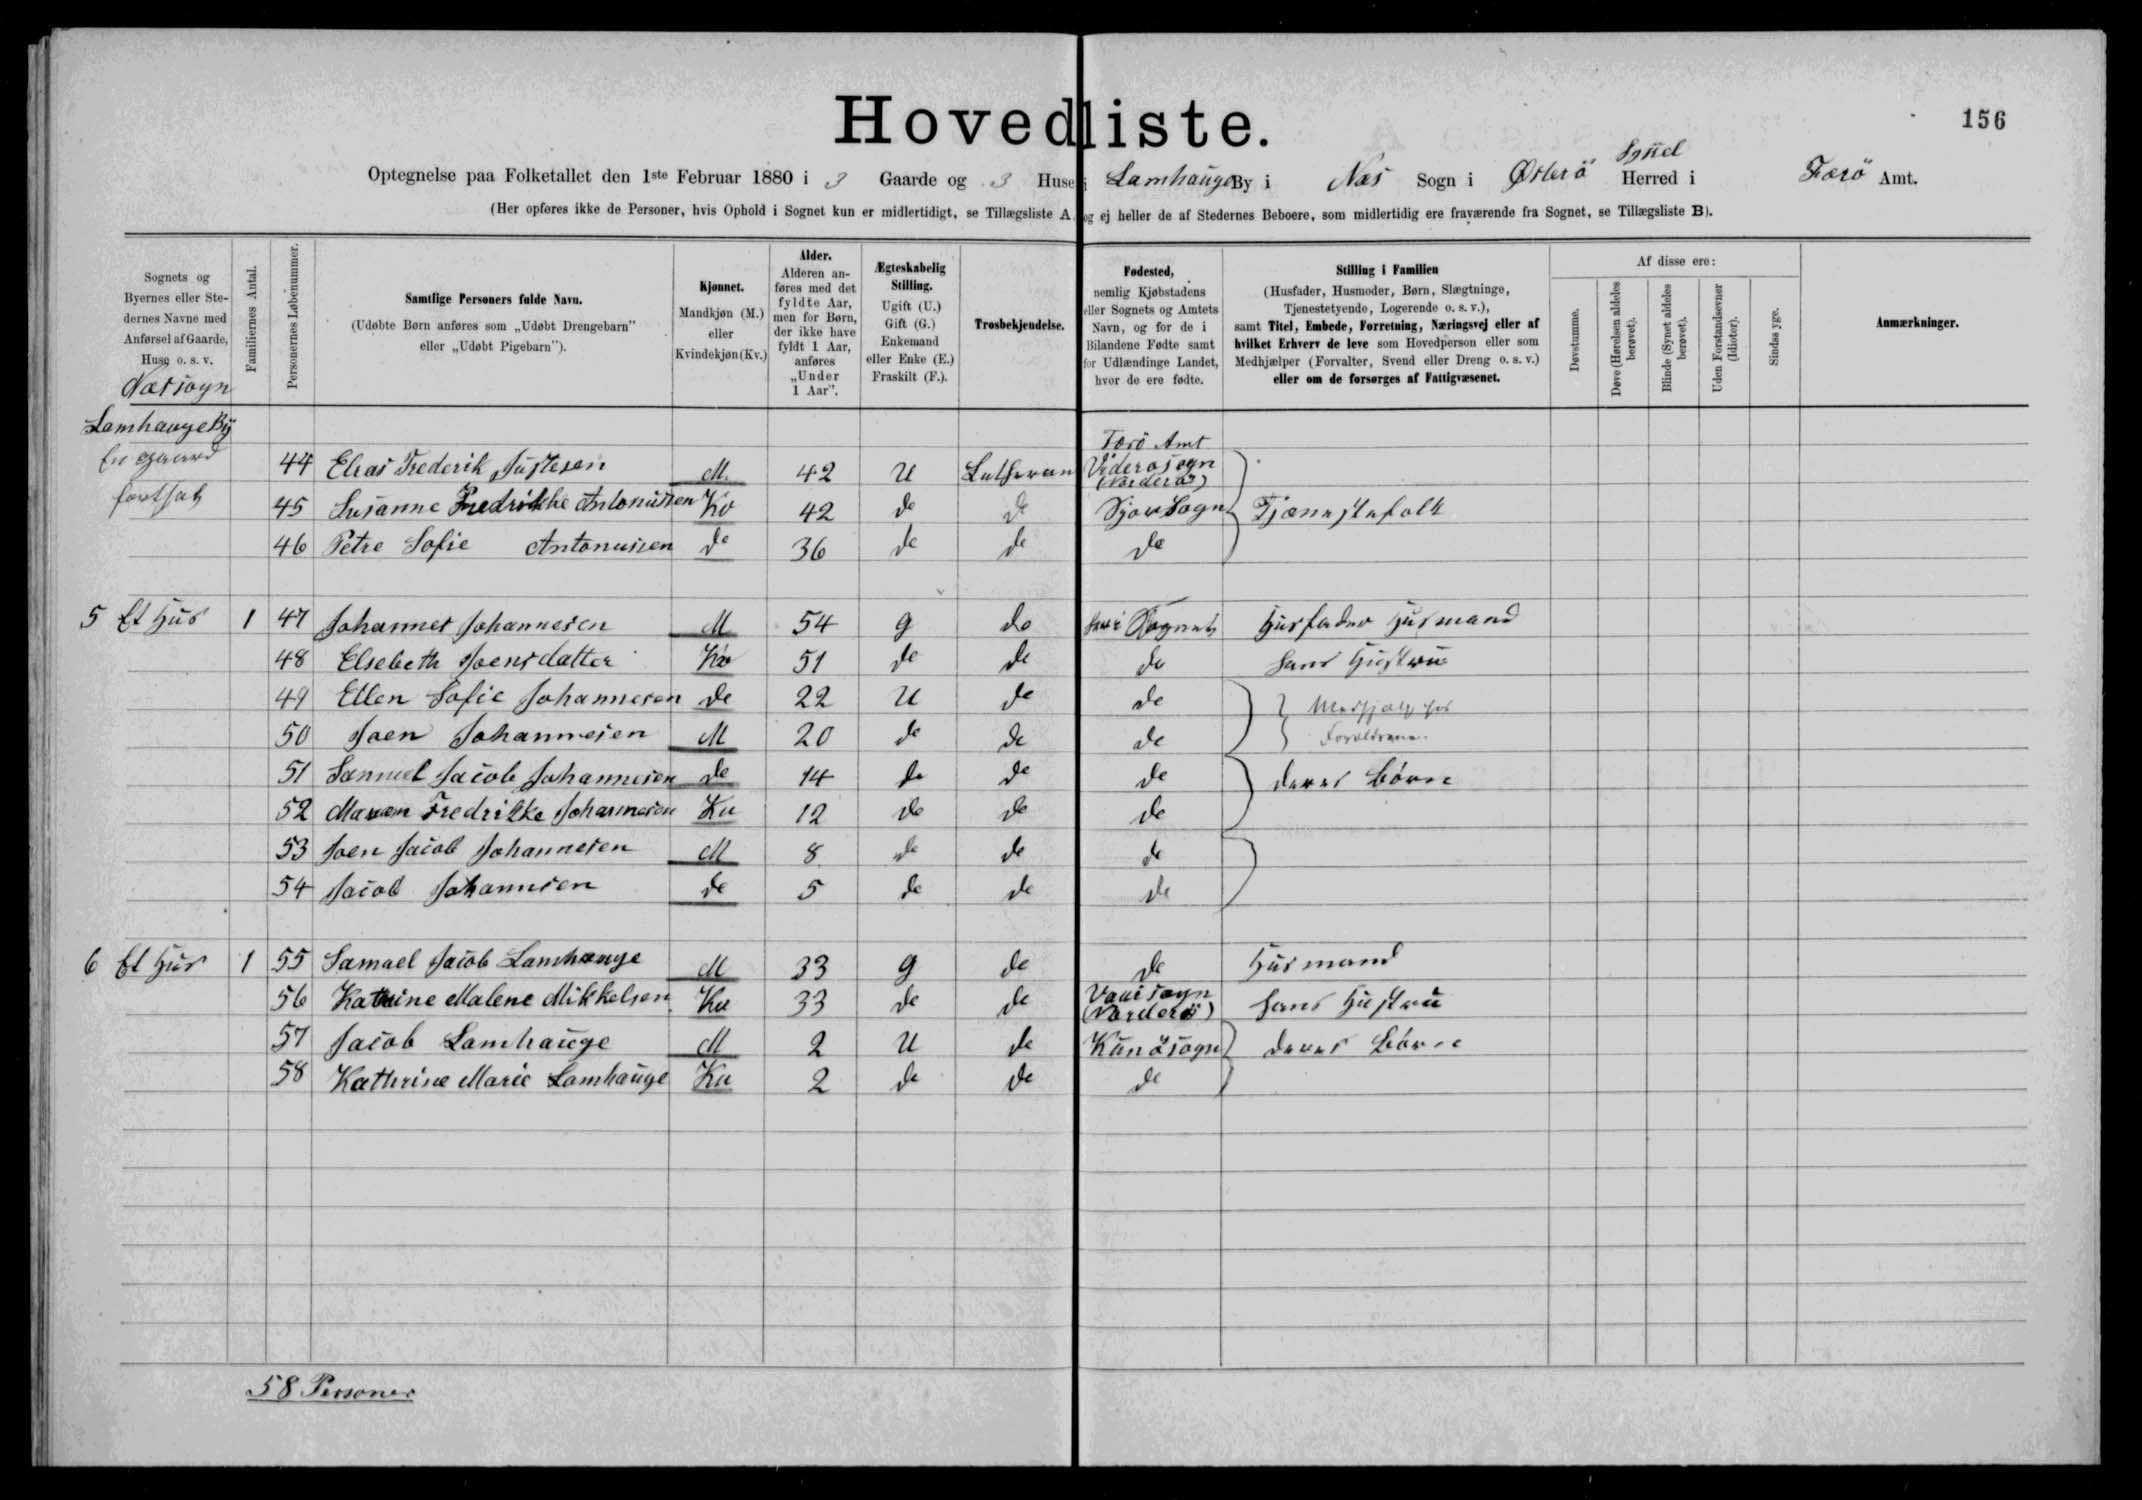 156
Hovedliste.
Optegnelse paa Folketallet den 1ste Februar 1880 i 3 Gaarde og 3 Huse i Lamhauge By i Næs Sogn i Østerö Syssel Herred i Færö Amt.
(Her opføres ikke de Personer, hvis Ophold i Sognet kun er midlertidigt, se Tillægsliste A, og ej heller de af Stedernes Beboere, som midlertidig ere fraværende fra Sognet, se Tillægsliste B).
Sognets og Byernes eller Stedernes Navne med Anførsel af Gaarde, Huse o. s. v.
Familiernes Antal.
Personernes Løbenummer.
Samtlige Personers fulde Navn.
(Udøbte Børn anføres som „Udøbt Drengebarn" eller „Udøbt Pigebarn").
Kjønnet.
Mandkjøn (M.) eller Kvindekjøn (Kv.)
Alder.
Alderen anføres med det fyldte Aar, men for Børn, der ikke have fyldt 1 Aar, anføres „Under 1 Aar".
Ægteskabelig Stilling.
Ugift (U.) Gift (G.) Enkemand eller Enke (E.) Fraskilt (F.).
Trosbekjendelse.
Fødested,
nemlig Kjøbstadens eller Sognets og Amtets Navn, og for de i Bilandene Fødte samt for Udlændinge Landet, hvor de ere fødte.
Stilling i Familien
(Husfader, Husmoder, Børn, Slægtninge, Tjenestetyende, Logerende o. s. v.), samt Titel, Embede, Forretning, Næringsvej eller af hvilket Erhverv de leve som Hovedperson eller som Medhjælper (Forvalter, Svend eller Dreng o. s. v.) eller om de forsørges af Fattigvæsenet.
Af disse ere:
Døvstumme.
Døve (Hørelsen aldeles berøvet).
Blinde (Synet aldeles berøvet).
Uden Forstandsevner (Idioter).
Sindssyge.
Anmærkninger.
Næs sogn
Lamhauge By
Færö Amt
En gaard 44 Elias Frederik Justesen M. 42 U Lutheran Viderøsogn (Norderø)
fortsat 45 Susanne Fredrikke Antonussen Kv 42 do do Sjov Sogn Tjenestefolk
46 Petre Sofie Antonussen do 36 do do do
5 Et Hus 1 47 Johannes Johannesen M 54 g do her i Sognet Husfader Husmand
48 Elsebeth Joensdatter Kv 51 do do do hans Hustru
49 Ellen Sofie Johannesen do 22 U do do Medhjælp hos
50 Joen Johannesen M 20 do do do Forældrene
51 Samuel Jacob Johannesen do 14 do do do deres Børn
52 Maren Fredrikke Johannesen Kv 12 do do do
53 Joen Jacob Johannesen M 8 do do do
54 Jacob Johannesen do 5 do do do
6 Et Hus 1 55 Samuel Jacob Lamhauge M 33 g do do Husmand
56 Kathrine Malene Mikkelsen Kv 33 do do Vaaisogn (Norderø) hans Hustru
57 Jacob Lamhauge M 2 U do Kunösogn deres Børn
58 Kathrine Marie Lamhauge Kv 2 do do do
58 Personer